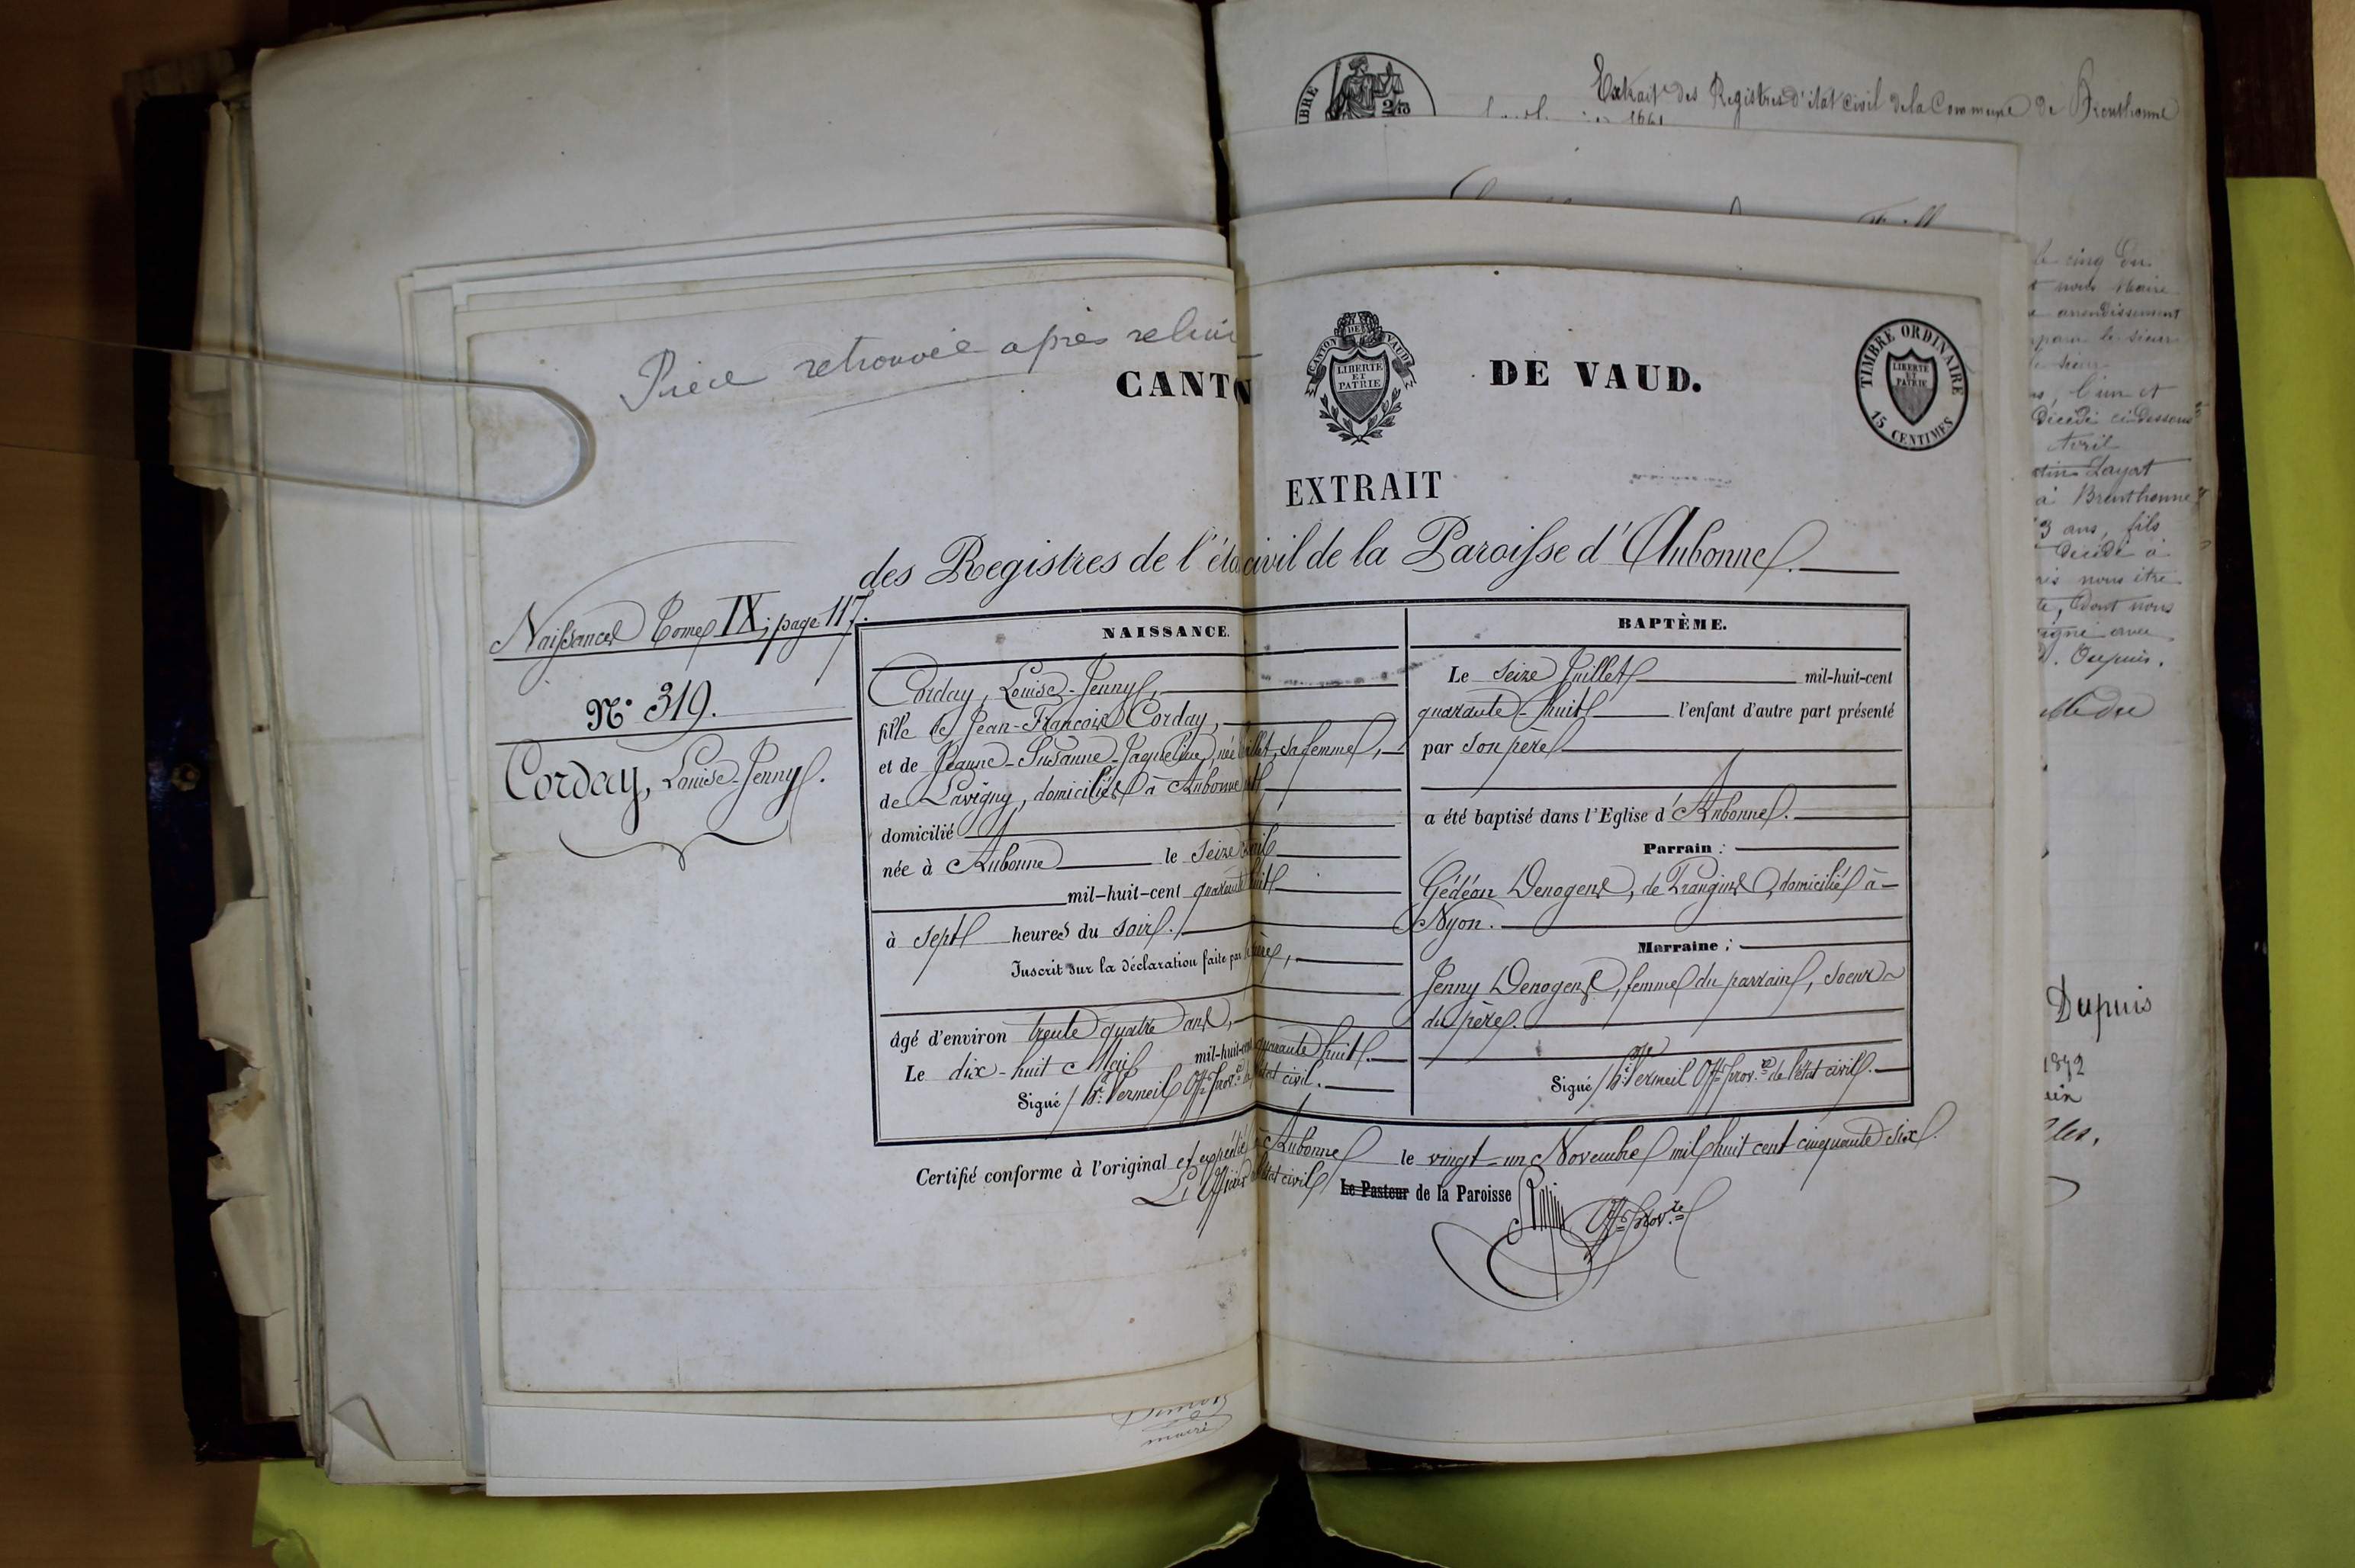 Extrait des Registres d'état civil de la Commune de Brenthonne
IBRE
2/10
1861
Pièce retrouvée après reliu
CANTON
CANTON DE VAUD
LIBERTE
ET
PATRIE
DE VAUD.
TIMBRE ORDINAIRE
LIBERTE
ET
PATRIE
15 CENTIMES
EXTRAIT
des Registres de l'état civil de la Paroisse d'Aubonne.
Naissances Tome IX; page 117.
N° 319.
Corday, Louise-Jenny.
NAISSANCE.
Corday, Louise-Jenny,
fille de Jean-François Corday,
et de Jeanne-Susanne-Jaqueline, née sa femme,
de Lavigny, domiciliés à Aubonne
domicilié
née à Aubonne le seize
mil-huit-cent quarante huit
à sept heures du soir.
Inscrit sur la déclaration faite par le père,
âgé d'environ trente quatre ans,
Le dix-huit Mai mil-huit-cent quarante huit.
Signé / Vermeil Off. prov.re de l'état civil.
BAPTÈME.
Le seize Juillet mil-huit-cent
quarante-huit l'enfant d'autre part présenté
par son père
a été baptisé dans l'Eglise d'Aubonne.
Parrain :
Gédéon Denogent, de Prangins, domicilié à
Nyon.
Marraine :
Jenny Denogent, femme du parrain, soeur
du père.
Signé / Vermeil Off. prov.re de l'état civil.
Certifié conforme à l'original et expédié à Aubonne le vingt-un Novembre mil huit cent cinquante six.
L'Officier de l'état civil Le Pasteur de la Paroisse
Off. prov.re
maire
le cinq
nous Maire
arrondissement
le sieur
l'un et
Décédé ci dessous
Avril
Layat
à Brenthonne
3 ans, fils
Décédé à
nous être
dont nous
signé avec
Dupuis.
Dupuis
1872